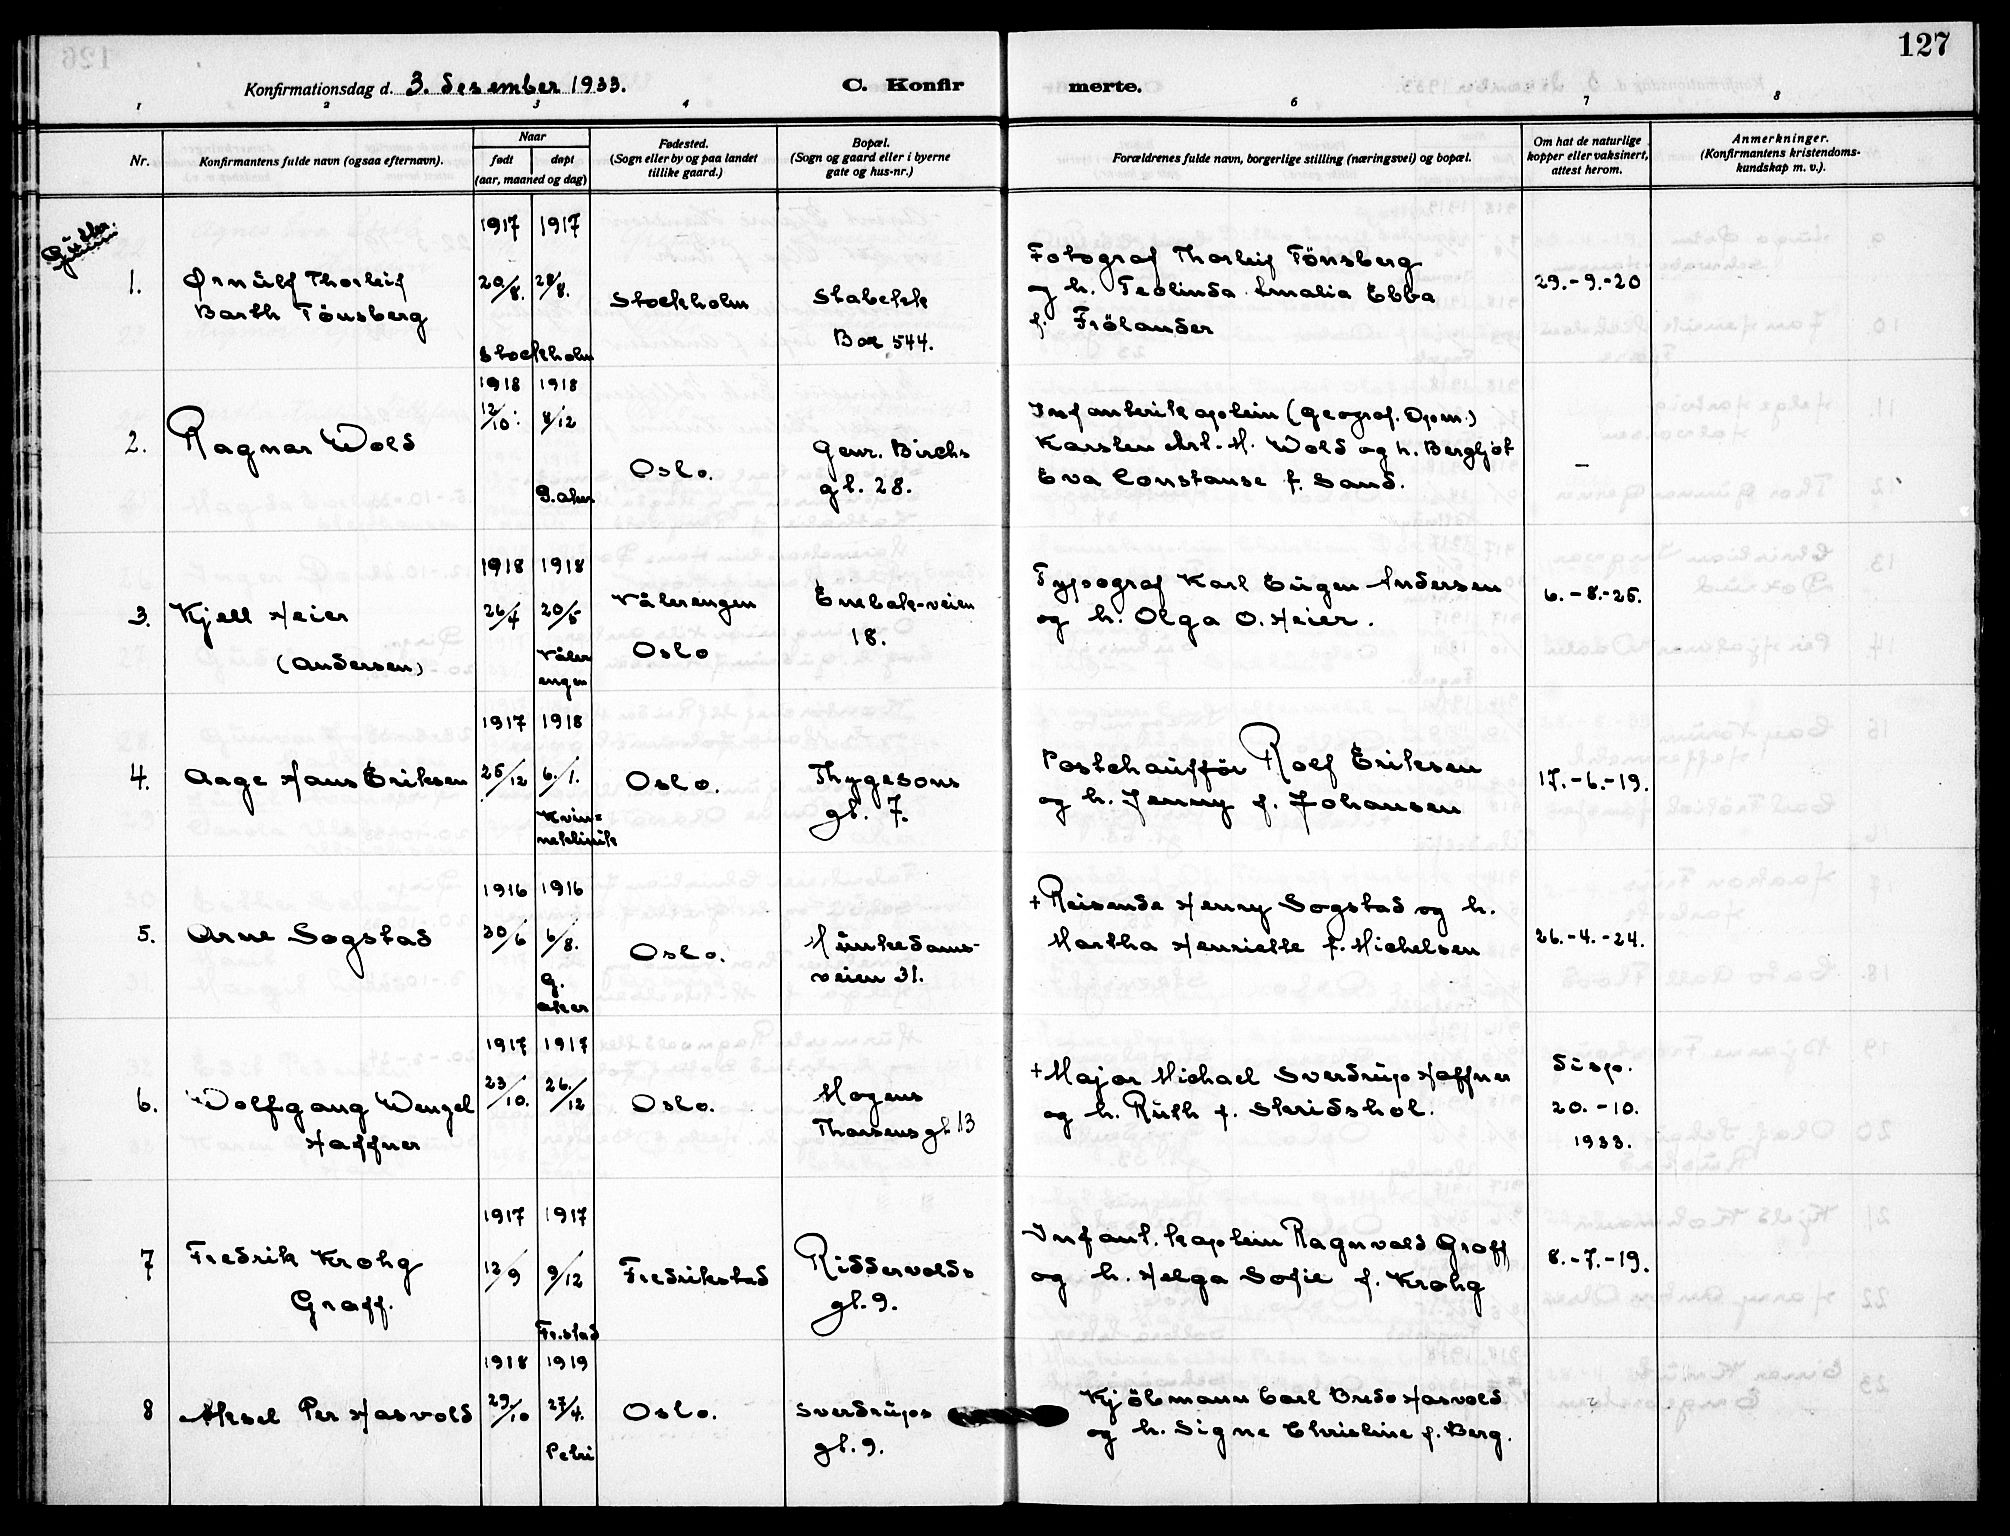 127
Konfirmationsdag d. 3. desember 1933. C. Konfirmerte.
1 2 3 4 6 7 8
Nr.
Konfirmantens fulde navn (ogsaa efternavn).
Naar
født døpt
(aar, maaned og dag)
Fødested.
(Sogn eller by og paa landet
tillike gaard.)
Bopæl.
(Sogn og gaard eller i byerne
gate og hus-nr.)
Forældrenes fulde navn, borgerlige stilling (næringsvei) og bopæl.
Om hat de naturlige
kopper eller vaksinert,
attest herom.
Anmerkninger.
(Konfirmantens kristendoms-
kundskap m. v.).
Gutter.
1.
Ørnülf Thorleif
Barth Tönsberg
1917 1917
20/8. 28/8.
Stockholm
Stockholm
Stabekk
Box 544.
Fotograf Thorleif Tönsberg
og h. Teolinda Amalia Ebba
f. Frölander
29.-9.-20
2.
Ragnar Wold
1918 1918
12/10. 8/12
G. aker
Oslo.
Genr. Birchs
gt. 28.
Infanterikaptein (Geograf. Opm.)
Karsten Art. M. Wold og h. Bergljot
Eva Constanse f. Sand.
–
3.
Kjell Heier
(Andersen)
1918 1918
26/4 20/5
Våler
engen
Vålerengen
Oslo
Enebak-veien
18.
Typograf Karl Eügen Andersen
og h. Olga O. Heier.
6.-8.-25.
4.
Aage Hans Eriksen
1917 1918
25/12 6./1.
Kvin=
neklinik
Oslo.
Thygesons
gt. 7.
Postchaüfför Rolf Eriksen
og h. Jenny f. Johansen
17.-6.-19.
5.
Arne Sogstad
1916 1916
30/6 6/8.
G.
aker
Oslo.
Münkedams-
veien 31.
+ Reisende Henry Sogstad og h.
Martha Henriette f. Michelsen
26.-4.-24.
6.
Wolfgang Wenzel
Haffner
1917 1917
23/10. 26./12
Oslo.
Mogens
Thorsens gt 13
+ Major Michael Sverdrüp Haffner
og h. Rüth f. Skridshol.
disp.
20.-10.
1933.
7
Fredrik Krohg
Graff.
1917 1917
12/9 9/12
Fr.stad
Fredrikstad
Riddervolds
gt. 9.
Infant. kaptein Ragnvald Graff
og h. Helga Sofie f. Krohg
8.-7.-19.
8
Aksel Per Hasvold
1918 1919
29/10 27/4.
Petri
Oslo.
Sverdrüps
gt. 9.
Kjöbmann Carl Bredo Hasvold
og h. Signe Christine f. Berg.